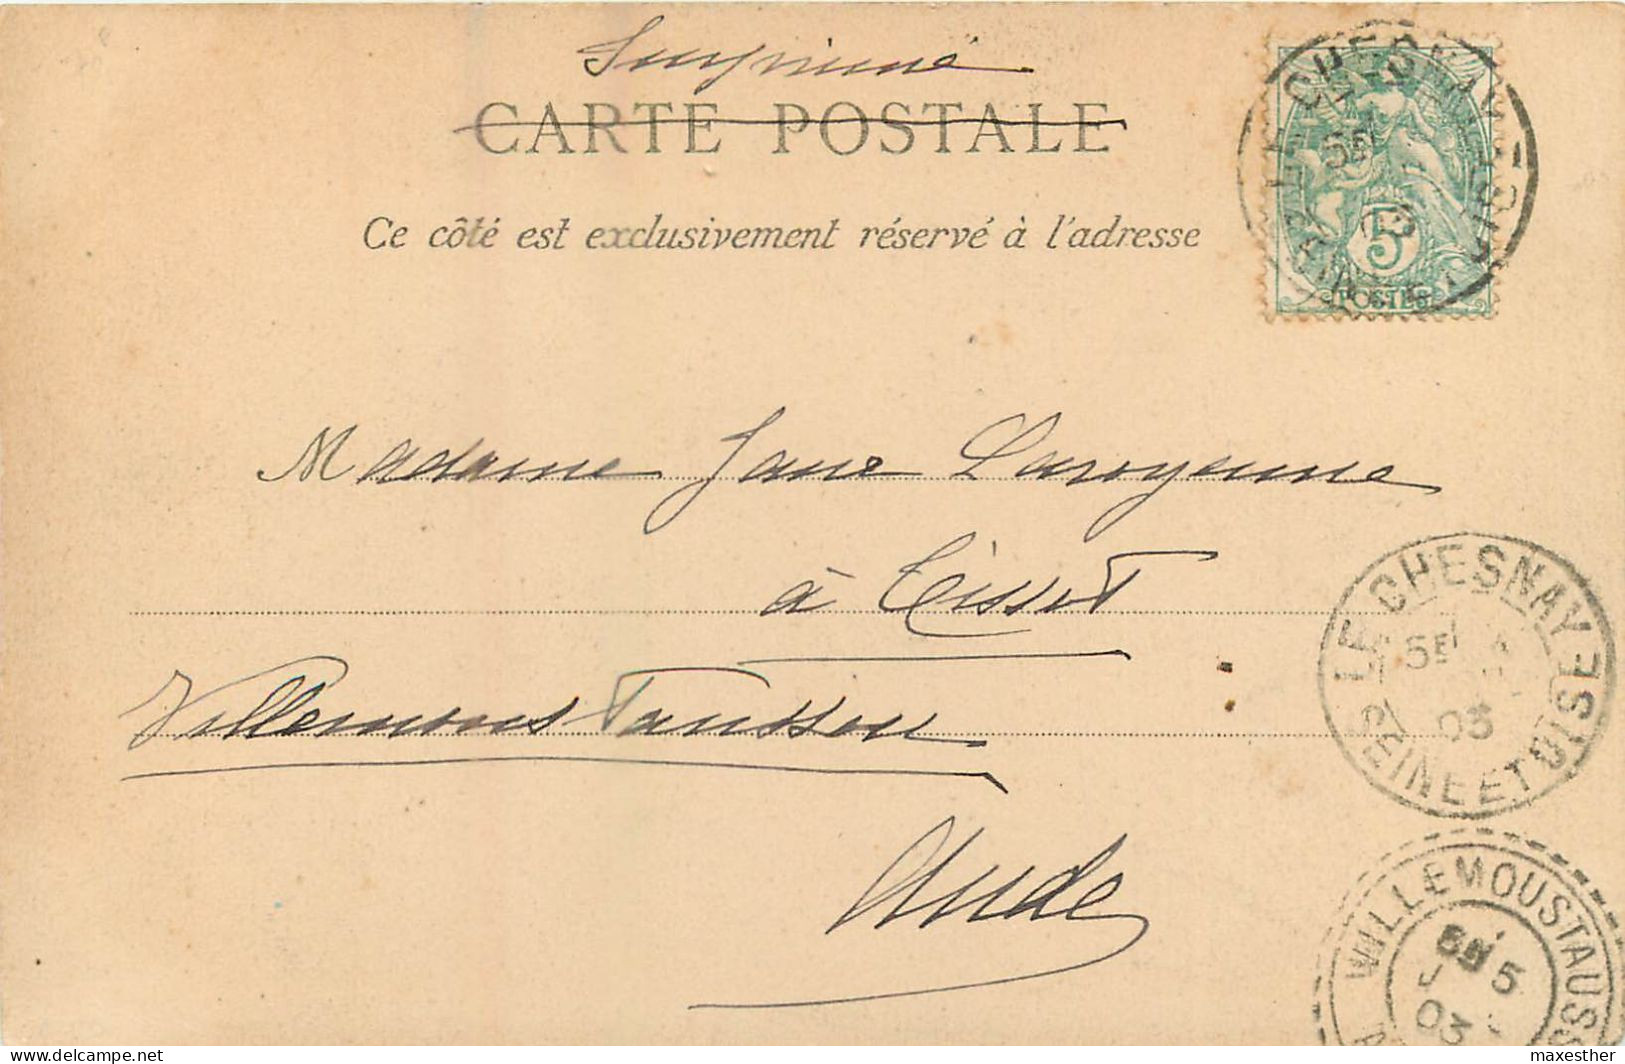 Imprimé
CARTE POSTALE
Ce côté est exclusivement réservé à l'adresse
LE CHESNAY
5
POSTES
Madame Jane Laroyenne
à Tissot
Villemoustaussou
Aude
LE CHESNAY
5E
03
SEINE ET OISE
VILLEMOUSTAUSS
5
03
maxesther